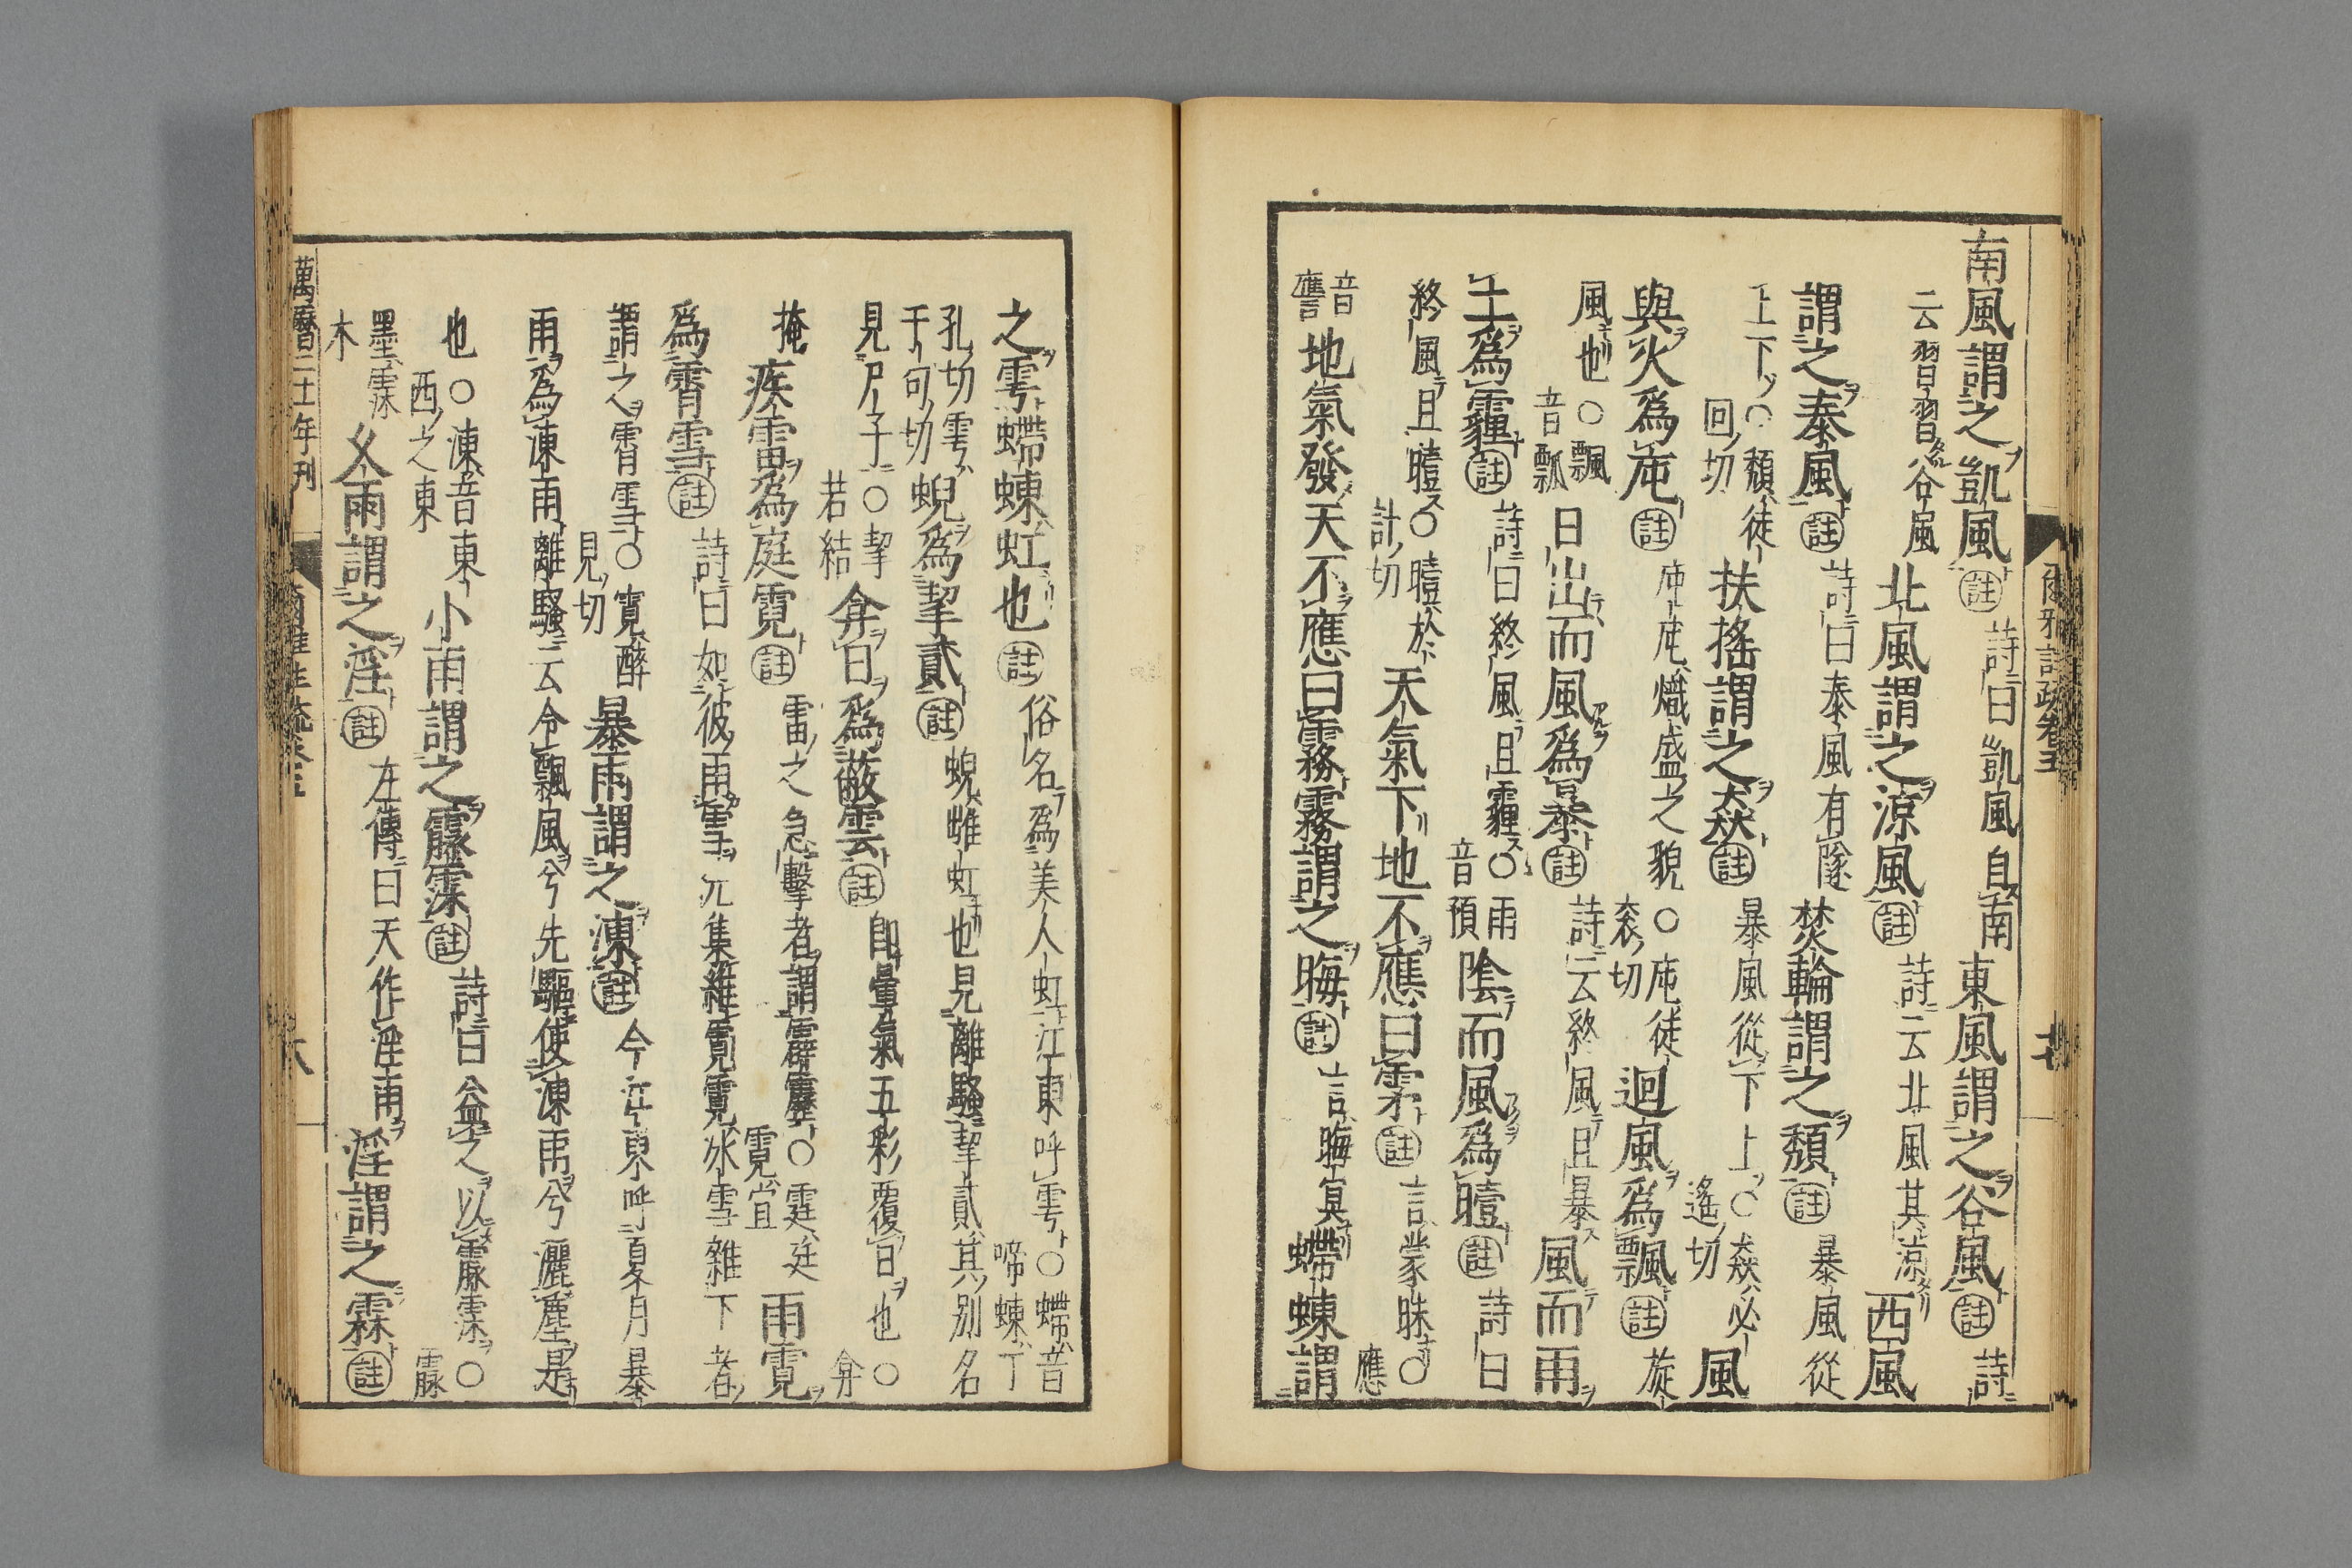 爾雅註疏卷五
南風謂之凱風註詩曰凱風自南東風謂之谷風註詩
云習習谷風北風謂之涼風註詩云北風其涼西風
謂之泰風註詩曰泰風有隧焚輪謂之頹註暴風從
上下○頹徒回切扶搖謂之猋註暴風從下上○猋必遙切風
與火爲庉註庉庉熾盛之貌○庉徒衮切迴風爲飄註旋
風也○飄音瓢日出而風爲暴註詩云終風且暴風而雨
土爲霾註詩曰終風且霾○雨音預陰而風爲曀註詩曰
終風且曀○曀於計切天氣下地不應曰雺註言蒙昧○應
音譍地氣發天不應曰霧霧謂之晦註言晦冥螮蝀謂
之雩螮蝀虹也註俗名爲美人虹江東呼雩○螮音啼蝀丁
孔切雩于句切蜺爲挈貳註蜺雌虹也見離騷挈貳其別名
見尸子○挈苦結弇日爲蔽雲註即暈氣五彩覆日也○弇
掩疾雷爲庭霓註雷之急擊者謂霹靂○霆廷霓宜雨霓
爲霄雪註詩曰如彼雨雪先集維霓霓冰雪雜下者
謂之霄雪○霓醉見切暴雨謂之涷註今江東呼夏月暴
雨爲涷雨離騷云令飄風兮先驅使涷雨兮灑塵是
也○涷音東西之東小雨謂之霡霂註詩曰益之以霡霂○霡
墨霂木久雨謂之淫註左傳曰天作淫雨淫謂之霖註
萬曆二十一年刊 爾雅註疏卷五 六